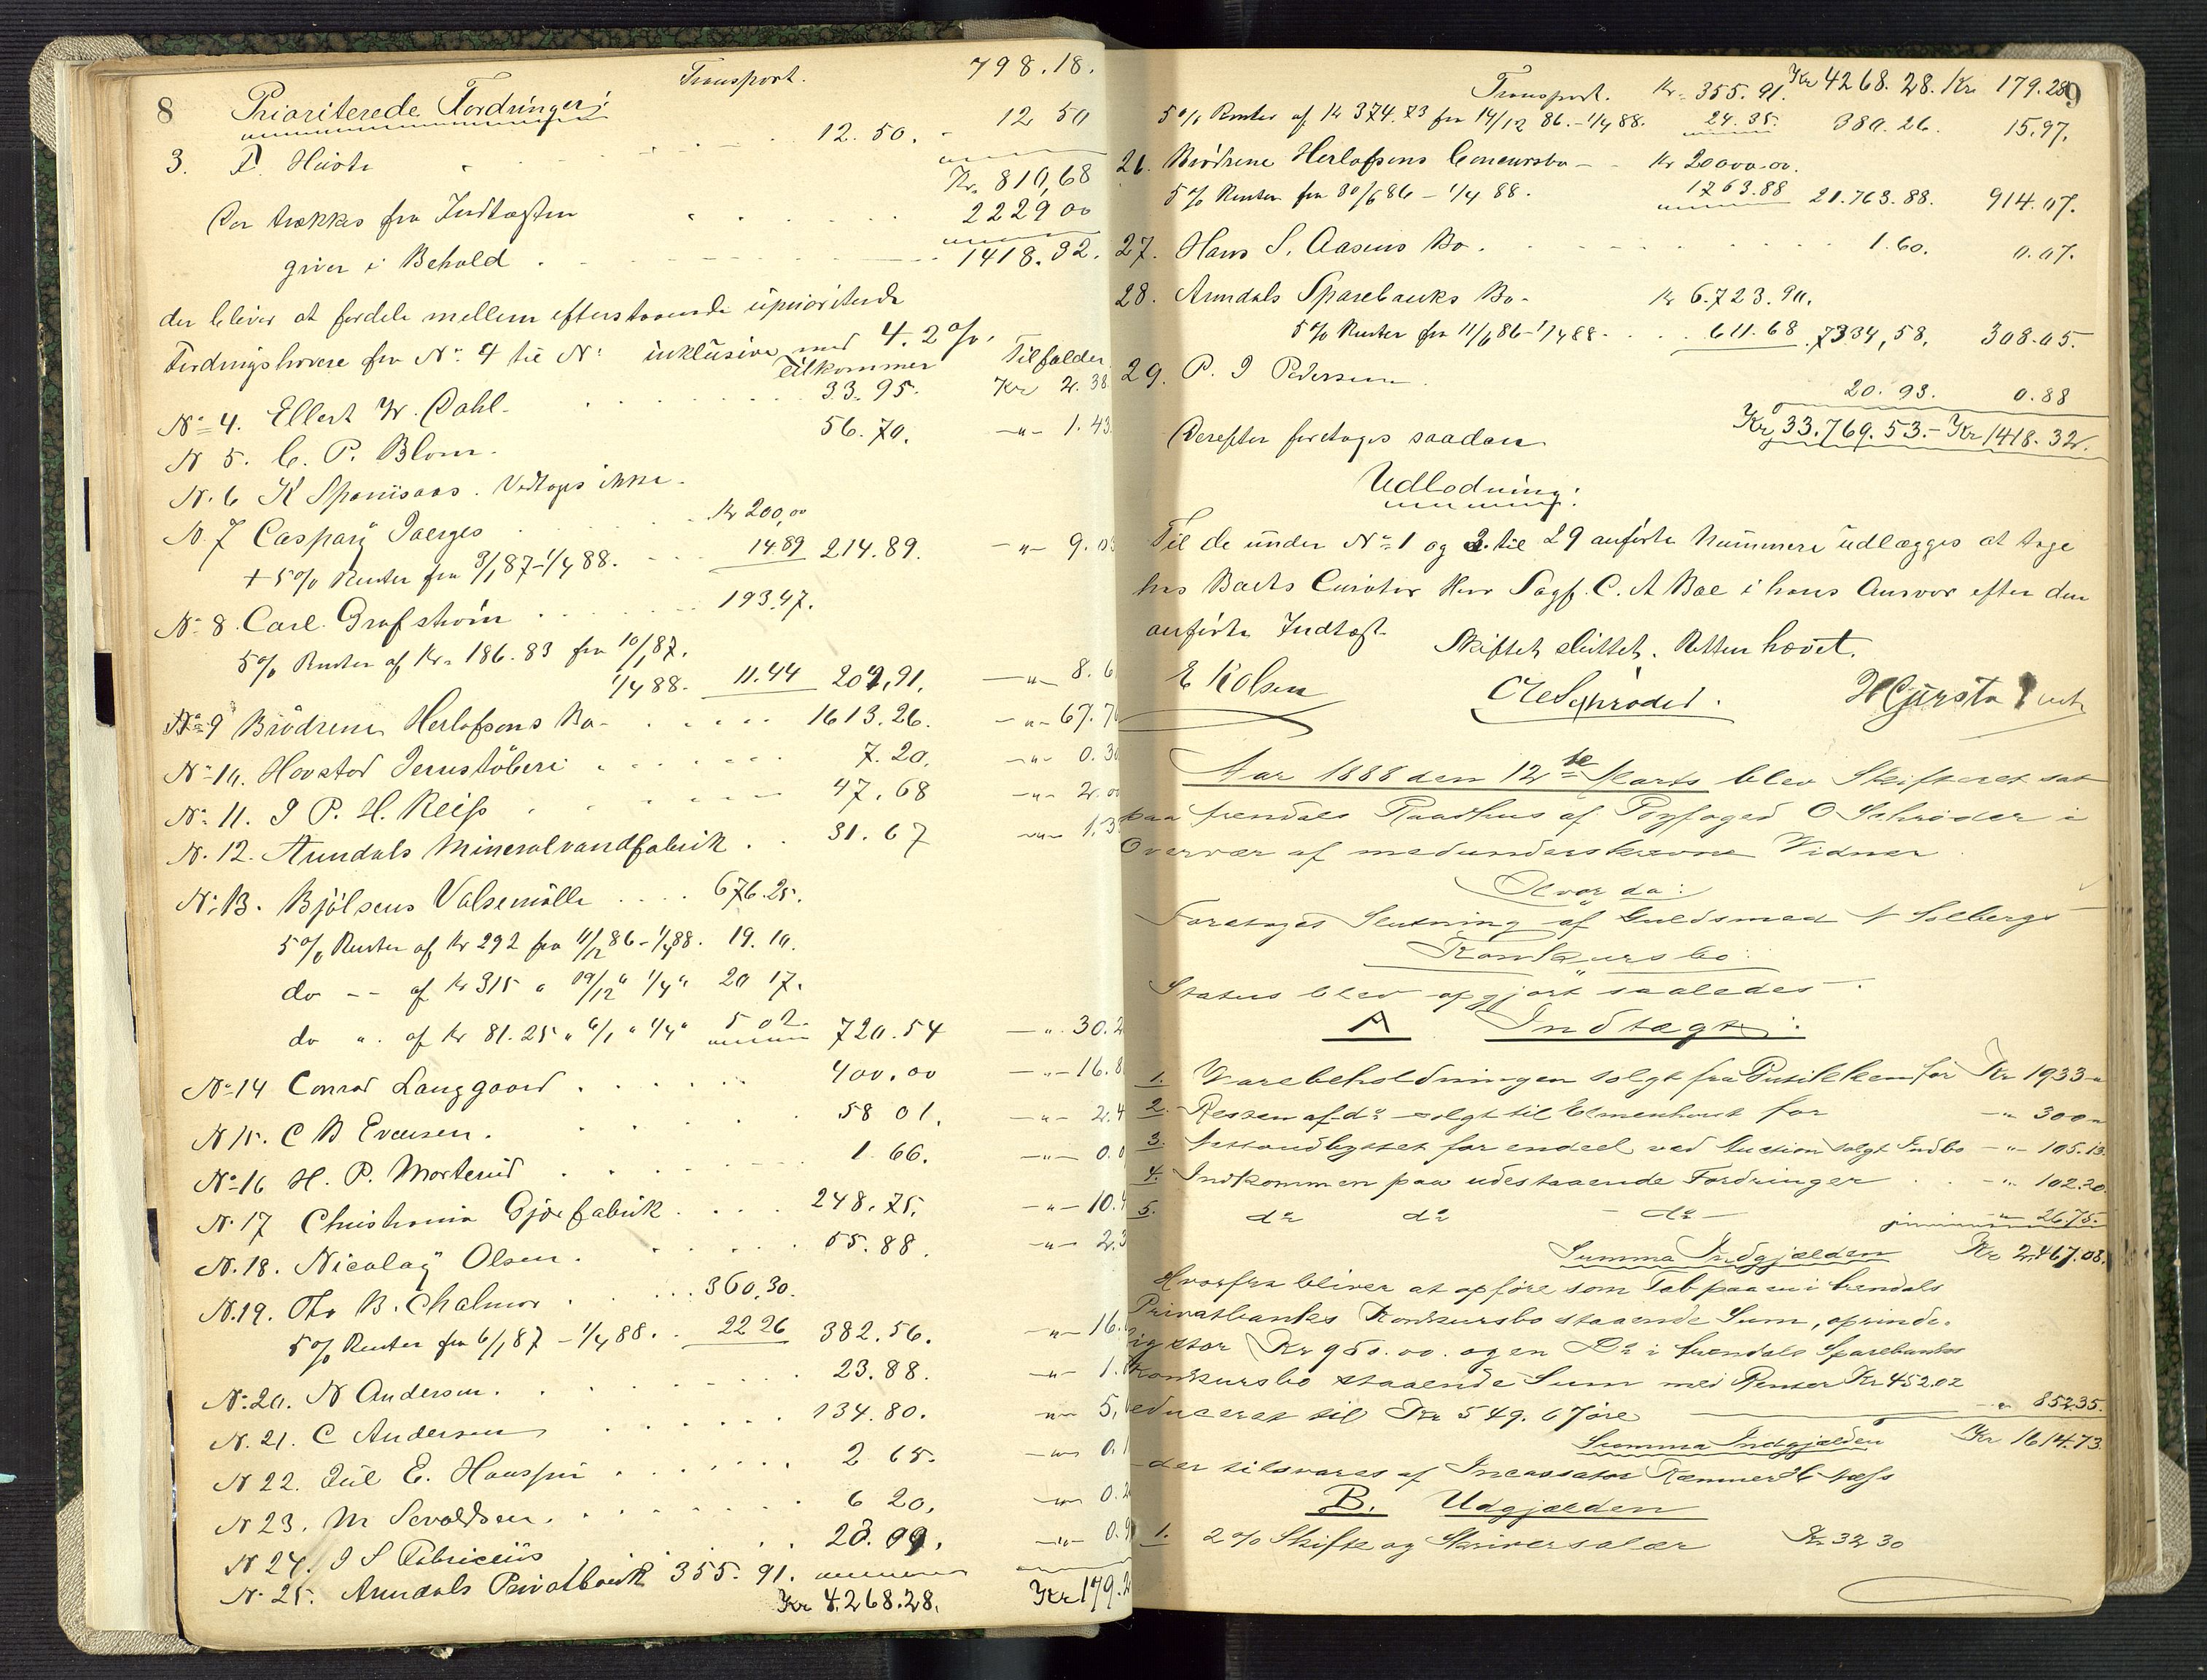 Transport. 798.18.
8 Prioriterede Fordringer:
3. P. Havste 12.50. - 12 50
Kr. 810,68
Der trækkes fra Indtægten 2229 00
giver i Behold 1418.32.
der bliver at fordele mellem efterstaaende uprioriterede
Fordringshavere fra No. 4 til No: inklusive med 4.2 %.
Tilkommer Tilfalder
No 4. Ellert W. Dahl. 33.95. Kr 2.38
N 5. C. P. Blom. 56.70. -"- 1.43
N. 6 K Spansaas. Vedtages ikke.
N. 7 Caspary Jaerges Kr 200,00
+ 5 % Renter fra 3/1 87-1/4 88. 14.89 214.89. -"- 9.03
No 8. Carl Grafstrøm 193.47.
5 % Renter af Kr. 186.83 fra 10/1 87.
1/4 88. 11.44 204,91. -"- 8.6
No 9 Brødrene Herlofsons Bo. 1613.26. -"- 67.7
No 10. Hovstad Jernstøberi 7.20. -"- 0.30
No 11. J P. H. Reiss 47.68 -"- 2.0
N. 12. Arendals Mineralvandfabrik 31.67 -"- 1.3
No 13. Bjölsens Valsemölle 676.25.
5 % Renter af Kr 292 fra 11/12 86-1/4 88. 19.10.
do -- af Kr 315 " 19/12 " 1/4 " 20 17.
do ". af Kr 81.25 " 6/1 " 1/4 " 5 02. 720.54 -"- 30.2
No 14 Conrad Langgaard 400.00 -"- 16.8
N 15. C B Evensen. 58 01. -"- 2.4
No 16 H. P. Morterud 1 66. -"- 0.0
N. 17 Christiania Gjærfabrik 248.75. -"- 10.4
N. 18. Nicolay Olsen. 55.88. -"- 2.3
N. 19. Ths B. Chalmor 360.30.
5 % Renter fra 6/1 87 - 1/4 88. 22 26 382.56. -"- 16.
No. 20. N Andersen. 23.88. -"- 1.
N. 21. C Andersen 134.80. -"- 5,
N 22. Jul E. Hanssen 2 65. -"- 0.1
N 23. M Sevaldsen. 6 20. -"- 0.2
N 24. J S Fabricius 20.99. -"- 0.9
N. 25. Arendals Privatbank 355.91.
Kr 4.268.28. Kr 179.2
Transport. Kr. 355.91. Kr 4268.28. Kr 179.28 9
5 % Renter af Kr 374.73 fra 14/12 86.-1/4 88. 24.35. 380.26. 15.97.
26. Brödrene Herlofsens Concursbo - Kr 20000.00.
5 % Renter fra 30/6 86 - 1/4 88. 1763.88 21.763.88. 914.07.
27. Hans S. Aasens Bo. 1.60. 0.07.
28. Arendals Sparebanks Bo. Kr 6.723.90.
5 % Renter fra 11/6 86-1/4 88. 611.68 7334,58. 308.05.
29. P. J Pedersen 20.93. 0.88
Derefter foretages saadan Kr 33.769.53.- Kr 1418.32.
Udlodning:
Til de under No 1 og 3. til 29 anførte Nummere udlægges at tage
hos Boets Curator Herr Sagf. C. A Bae i hans Ansvar efter den
anførte Indtægt.
Skiftet sluttet. Retten hævet.
E Kolsen OChSchrøder. HGjersta
Aar 1888 den 12te Marts blev Skifteret sat
paa Arendals Raadhus af Byfoged O Schrøder i
Overvær af medunderskrevne Vidner
Hvor da:
Foretages Slutning af Guldsmed N Solbergs
Konkursbo:
Status blev opgjort saaledes.
A Indtægt:
1. Varebeholdningen solgt fra Butikken for Kr 1933 "
2. Resten af do solgt til Elmenhorst for -" 300 "
3. Nettoudbyttet for endeel ved Auction solgt Indbo -"- 105.13
4. Indkommen paa udestaaende Fordringer -" 102.20.
5. do do - do - " 26.75.
Summa Indgjælden Kr 2467.08.
Hvorfra bliver at opføre som Tab paa en i Arendals
Privatbanks Konkursbo staaende Sum, oprinde-
lig stor Kr 950.00. og en Do i Arendals Sparebanks
Konkursbo staaende Sum med Renter Kr 452.02
reduceret til Kr 549.67 øre -" 852.35.
Summa Indgjælden Kr 1614.73.
der tilsvares af Incassator Kæmner
B. Udgjælden
1. 2 % Skifte og Skriversalær Kr 32 30